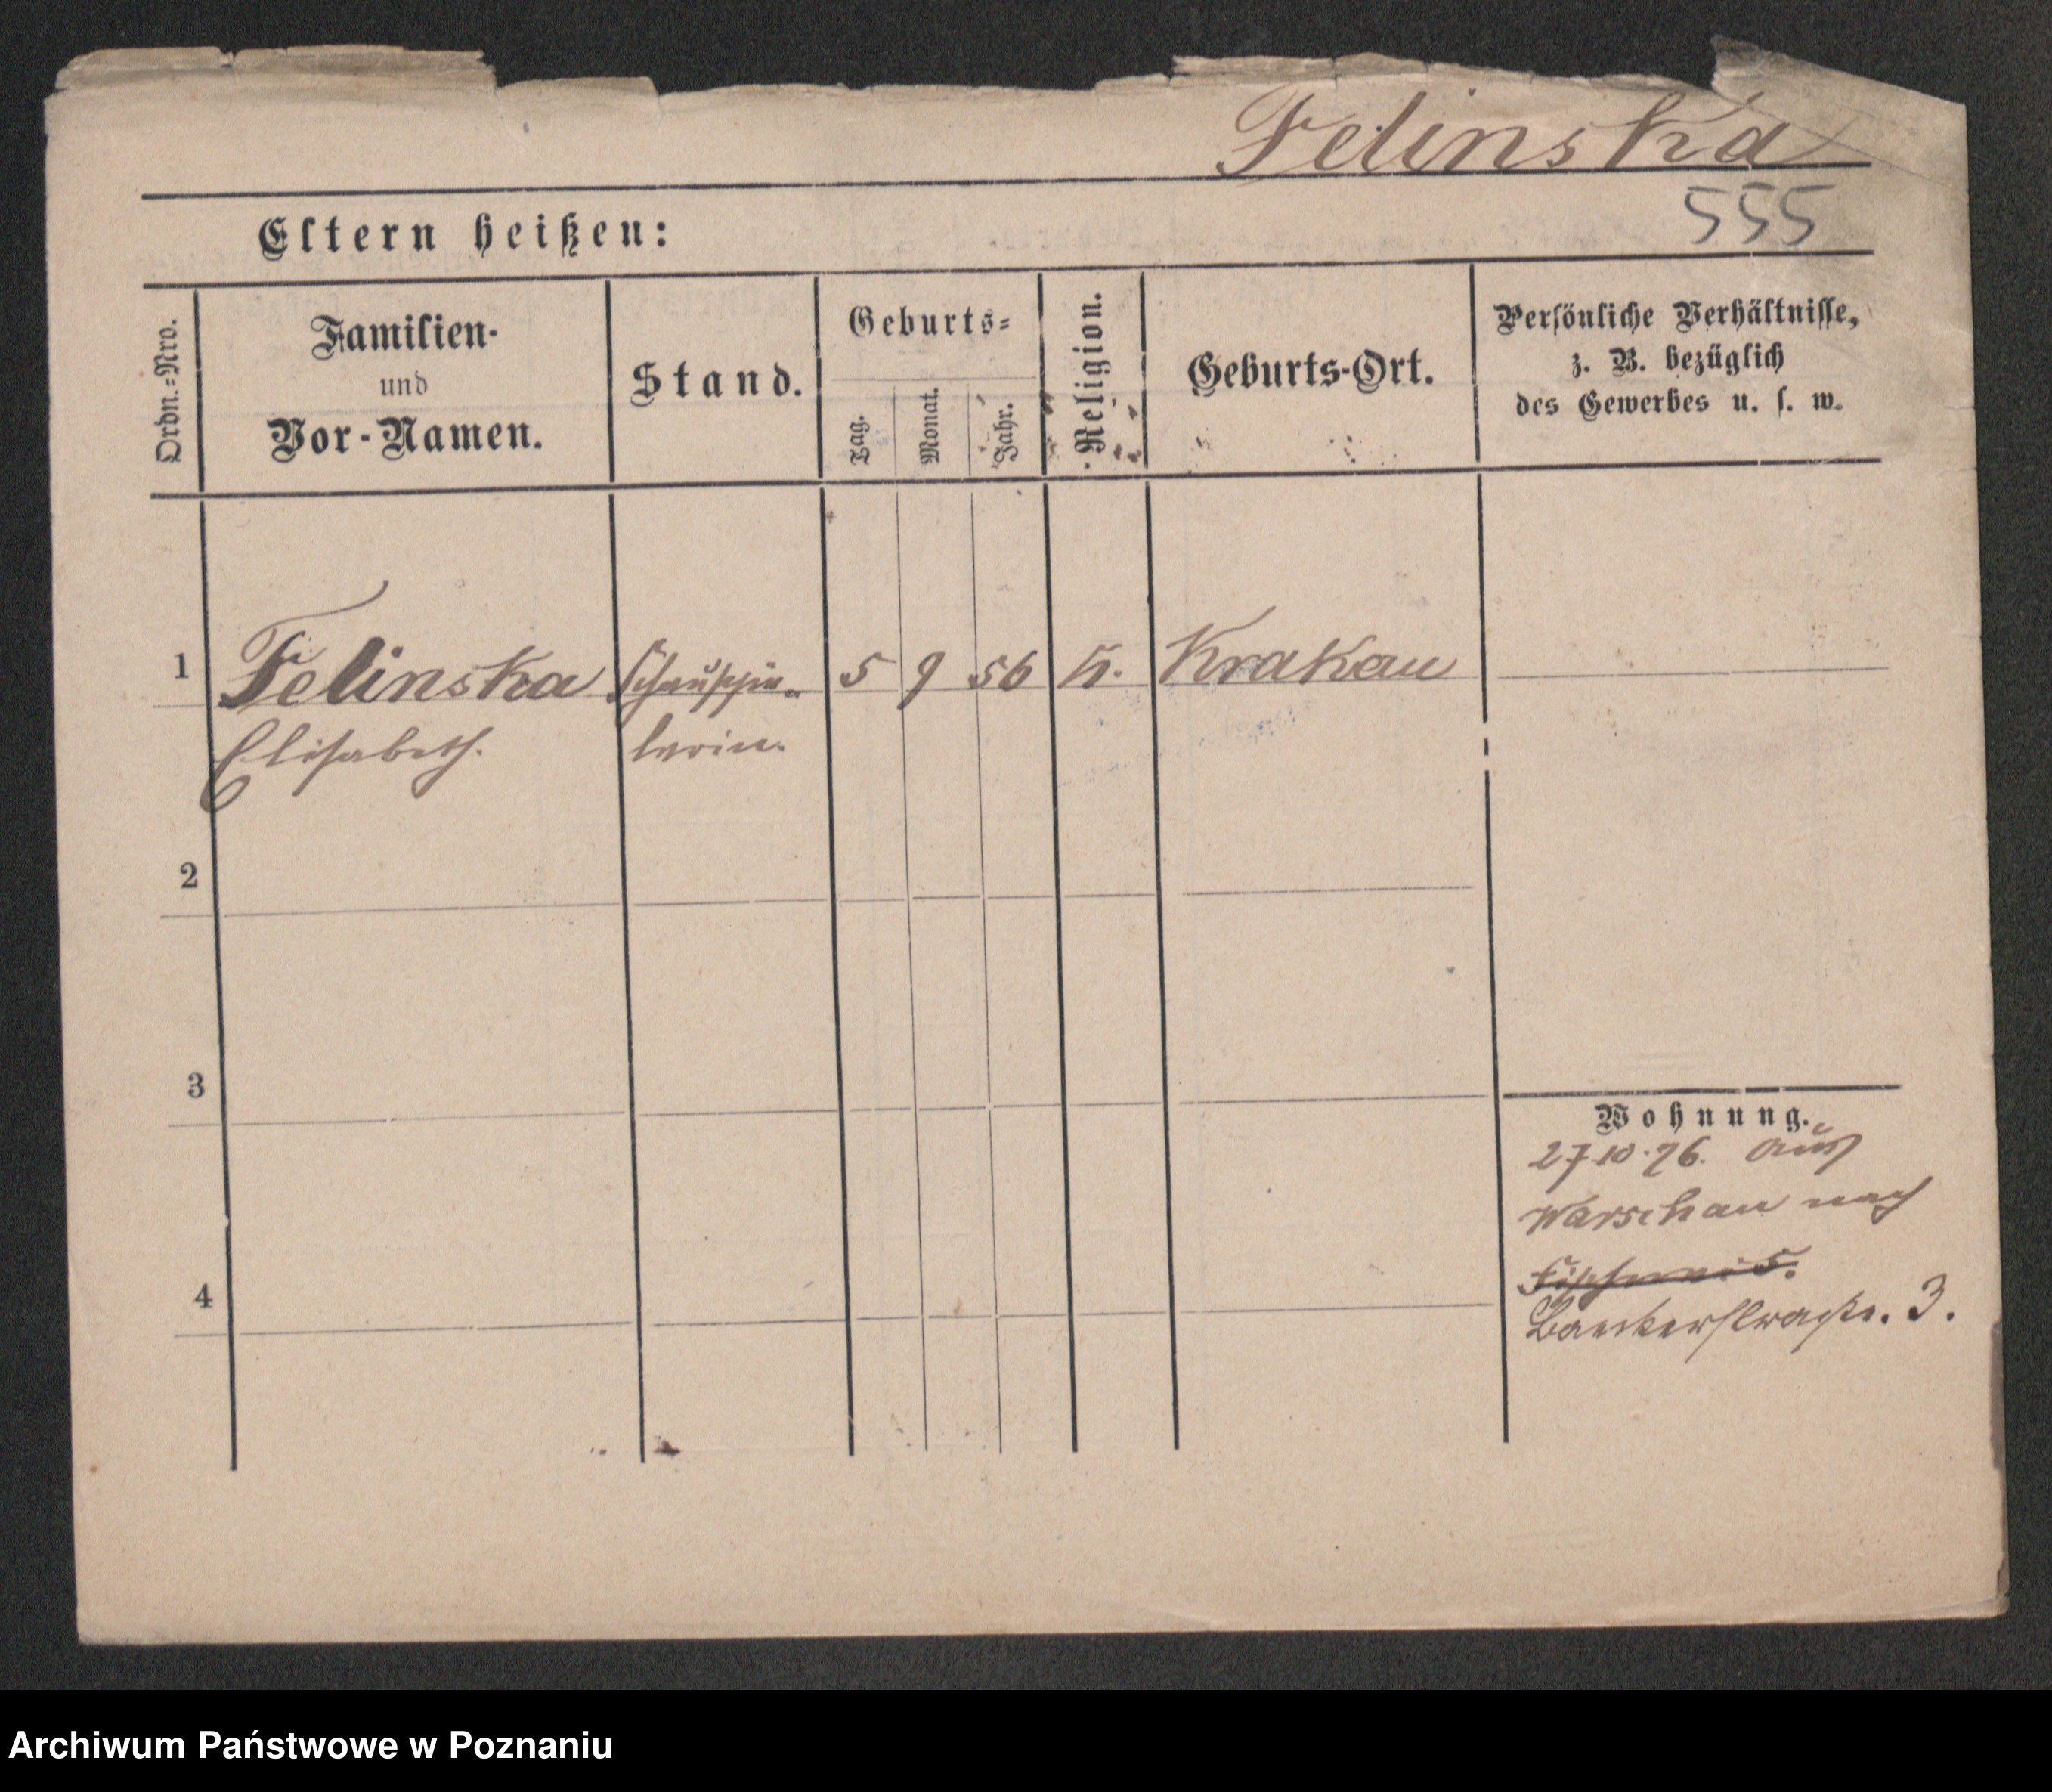 Felinska
555
Eltern heißen:
Ordn.=Nro.
Familien-
und
Vor-Namen.
Stand.
Geburts=
Tag.
Monat.
Jahr.
Religion.
Geburts-Ort.
Persönliche Verhältnisse,
z. B. bezüglich
des Gewerbes u. s. w.
1 Felinska Schauspie- 5 9 56 K. Krakau
Elisabeth. lerin.
2
3
Wohnung.
27.10.76. aus
Warschau nach
4
Baeckerstraße. 3.
Archiwum Państwowe w Poznaniu